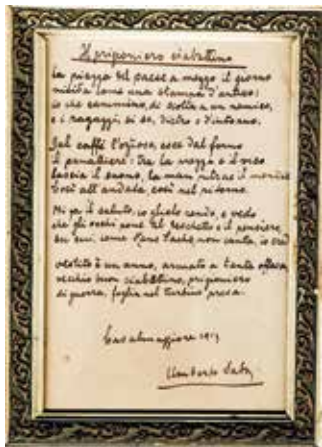 Il prigioniero ciabattino
La piazza del paese a mezzo il giorno
nitida come una stampa d'antico:
io che cammino, di scolta a un nemico,
e i ragazzi, si sa, dietro e d'intorno.
Dal caffè l'ozioso, esce dal forno
il panattiere: tra la mazza e il
lascia il suono, la man ritrae il
Così all'andata, così nel ritorno.
Mi fa il saluto, io glielo rendo, e vedo
che gli occhi pone al deschetto e il pensiero,
su cui, come Sachs, non canta, io credo
vestito è un anno, armato a tanta offesa,
vecchio buon ciabattino, prigioniero
di guerra, foglia nel turbine presa.
Casalmaggiore
Umberto Saba